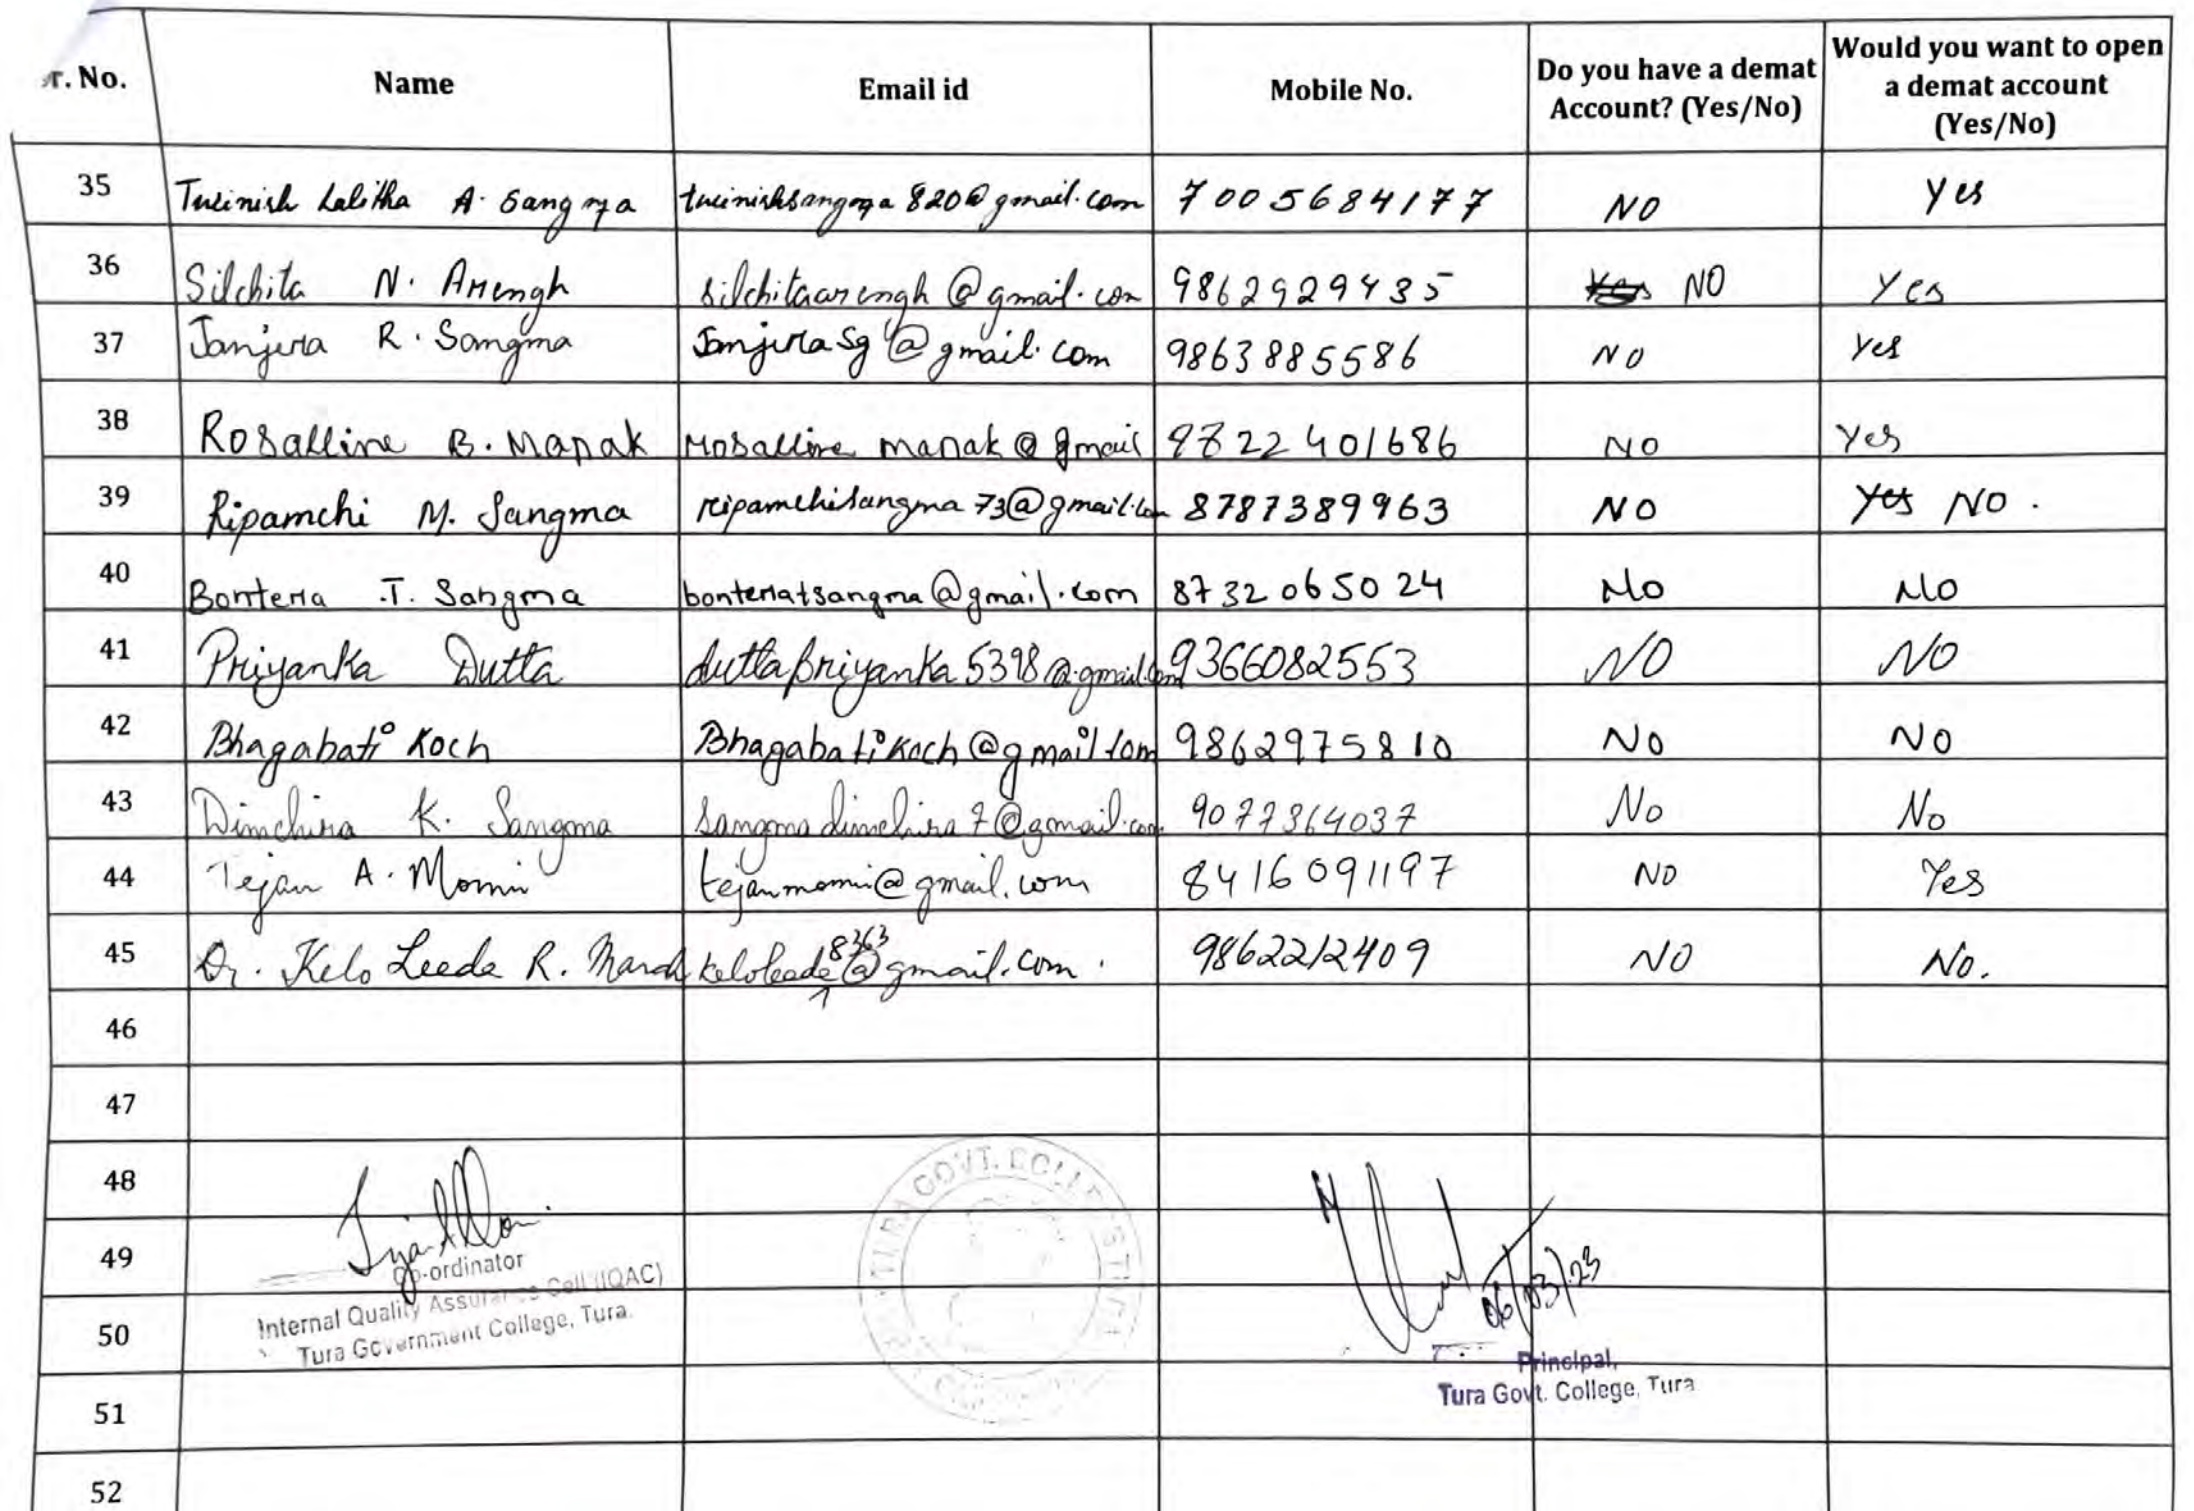 r. No. Name Email id Mobile No. Do you have a demat Account? (Yes/No) Would you want to open a demat account (Yes/No)
35 Twinish Lalitha A. Sangma twinishsangma820@gmail.com 7005684177 NO Yes
36 Silchita N. Arengh silchitaarengh@gmail.com 9862929435 Yes NO Yes
37 Janjira R. Sangma JanjiraSg@gmail.com 9863885586 NO Yes
38 Rosalline B. Marak rosalline marak@gmail 22401686 NO Yes
39 Ripamchi M. Sangma ripamchisangma73@gmail.com 8787389963 NO Yes NO.
40 Bontera T. Sangma bonteratsangma@gmail.com 8732065024 No No
41 Priyanka Dutta duttapriyanka5398@gmail.com 9366082553 NO NO
42 Bhagabati Koch BhagabatiKoch@gmail.com 9862975810 No NO
43 Dimchira K. Sangma sangmadimchira7@gmail.com No No
44 Tejan A. Momin tejanmomin@gmail.com 8416091197 NO Yes
45 Dr. Kelo Leede R. Marak keloleede8363@gmail.com. 9862212409 NO No.
46
47
48
49
50
51
52
Co-ordinator
Internal Quality Assurance Cell (IQAC)
Tura Government College, Tura.
TURA GOVT. COLLEGE
06/03/23
Principal,
Tura Govt. College, Tura